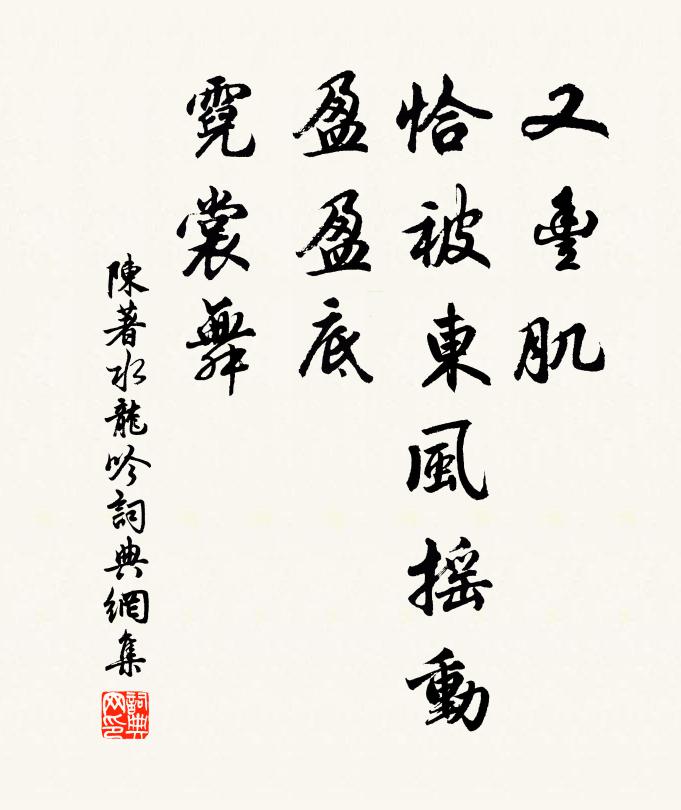 又豐肌
恰被東風搖動
盈盈盈底
霓裳舞
陳著水龍吟詞典網集
詞典
网印